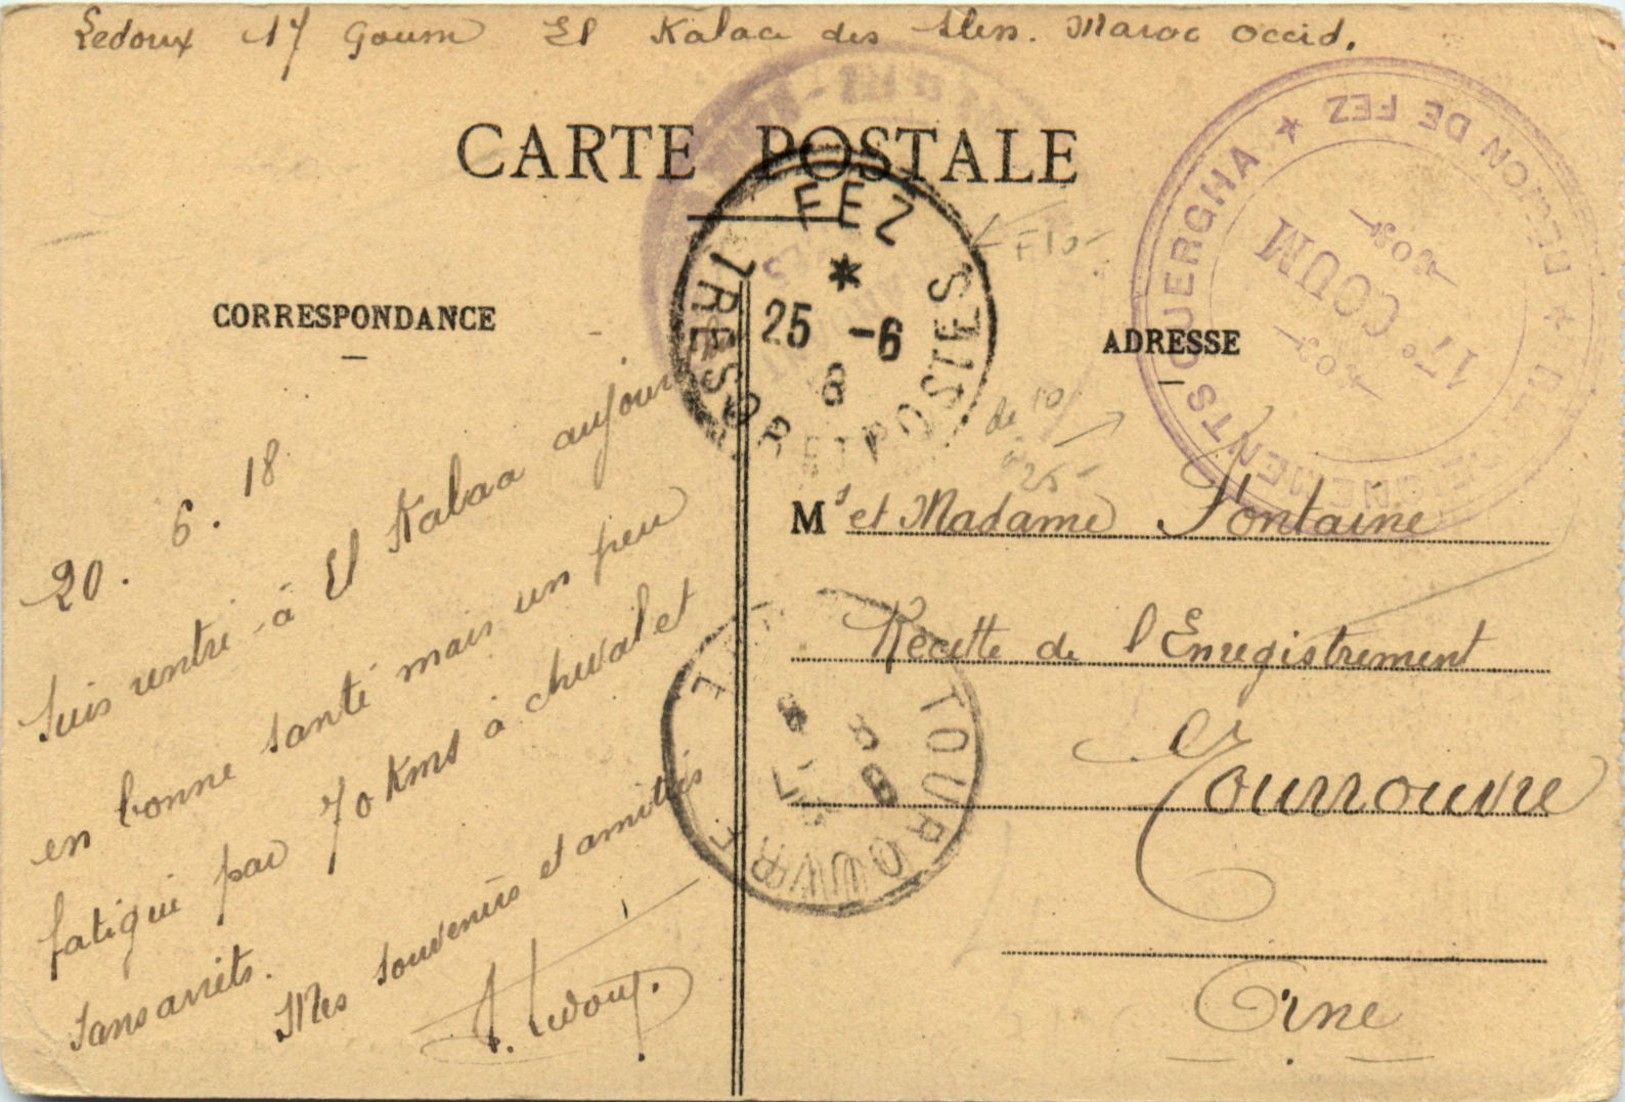 Ledoux 17 Goum El Kalaa des Sless. Maroc occid.
CARTE POSTALE
FEZ
TRESOR ET POSTES
25 -6
8
RENSEIGNEMENTS OUERGHA
REGION DE FEZ
17e GOUM
F10-
de 10
à 25-
CORRESPONDANCE
20. 6. 18
Suis rentré à El Kalaa aujourd
en bonne santé mais un peu
fatigué par 70 kms à cheval et
sans arrêts.
Mes souvenirs et amitiés
Ledoux.
ADRESSE
Mr et Madame Fontaine
Recette de l'Enregistrement
Tourrouvre
Orne
TOUROUVRE